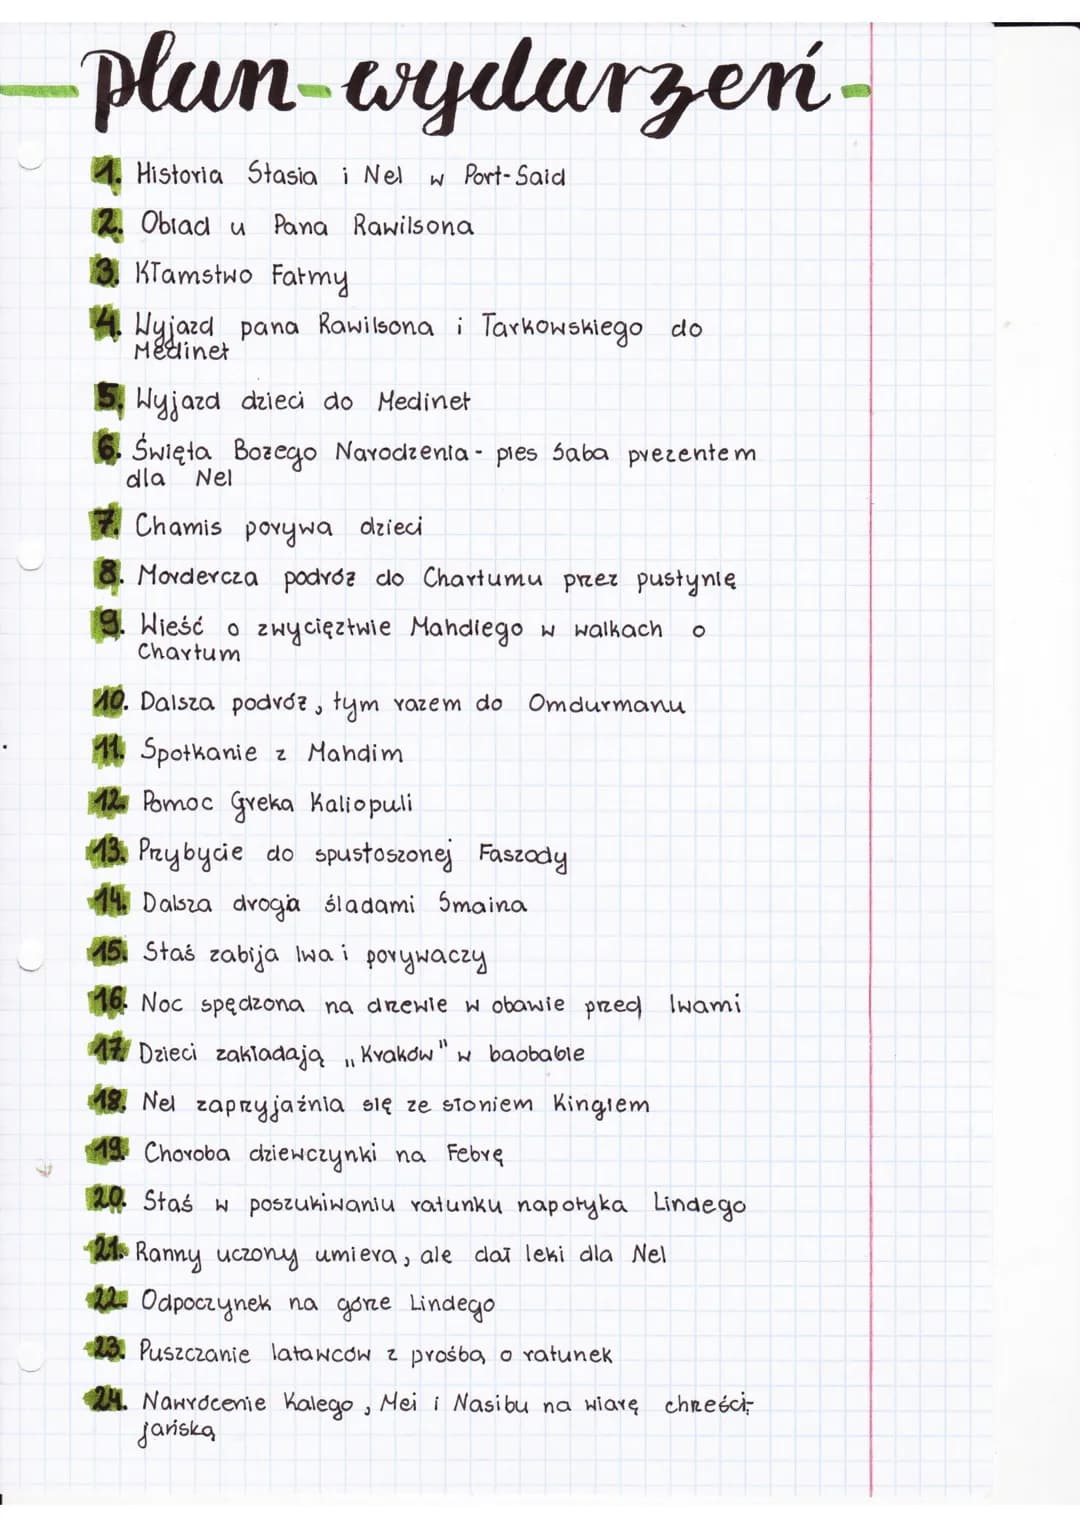 plan-wydarzeń-
1. Historia Stasia i Nel w Port-Said
2. Obiad u Pana Rawilsona
3. Kłamstwo Fatmy
4. Wyjazd pana Rawilsona i Tarkowskiego do
Medinet
5. Wyjazd dzieci do Medinet
6. Święta Bożego Narodzenia - pies Saba prezentem
dla Nel
7. Chamis porywa dzieci
8. Mordercza podróż do Chartumu przez pustynię
9. Wieść o zwycięztwie Mahdiego w walkach o
Chartum
10. Dalsza podróż, tym razem do Omdurmanu
11. Spotkanie z Mahdim
12. Pomoc Greka Kaliopuli
13. Przybycie do spustoszonej Faszody
14. Dalsza droga śladami Smaina
15. Staś zabija lwa i porywaczy
16. Noc spędzona na drzewie w obawie przed lwami
17. Dzieci zakładają „Kraków" w baobabie
18. Nel zaprzyjaźnia się ze słoniem Kingiem
19. Choroba dziewczynki na Febrę
20. Staś w poszukiwaniu ratunku napotyka Lindego
21. Ranny uczony umiera, ale dał leki dla Nel
22. Odpoczynek na górze Lindego
23. Puszczanie latawców z prośbą o ratunek
24. Nawrócenie Kalego, Mei i Nasibu na wiarę chrześci-
jańską